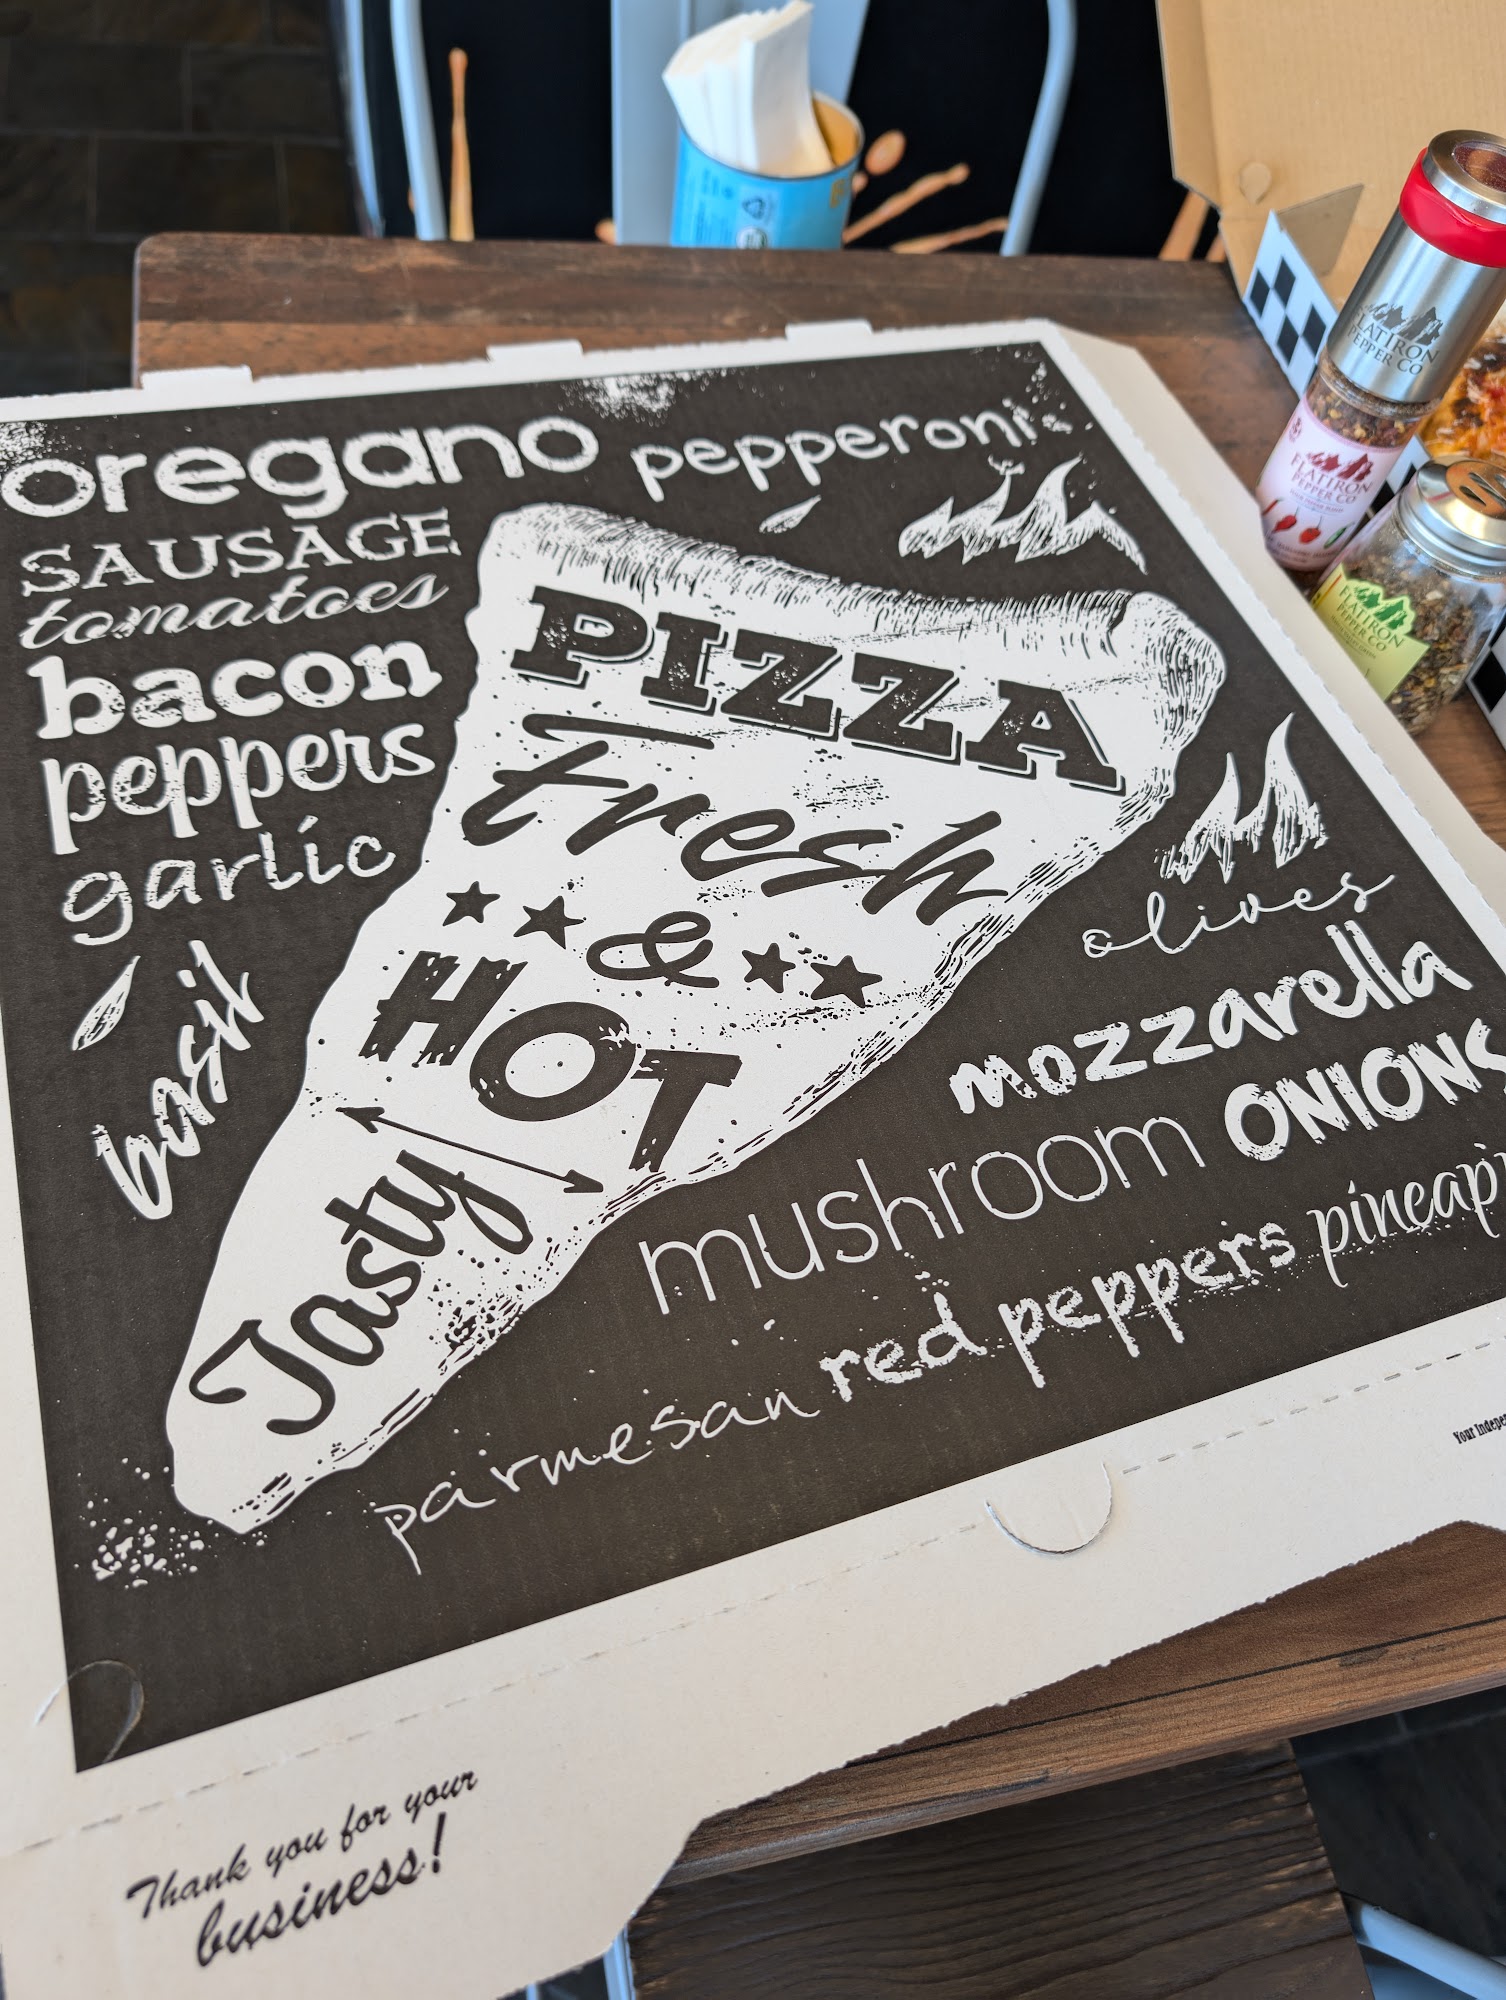 oregano pepperoni
SAUSAGE
tomatoes
bacon
peppers
garlic
basil
PIZZA
Fresh
&
HOT
Tasty
olives
mozzarella
mushroom ONIONS
parmesan red peppers pineapp
Thank you for your
business!
Your Indepe
FLATIRON
PEPPER CO
FLATIRON
PEPPER CO
FLATIRON
PEPPER CO